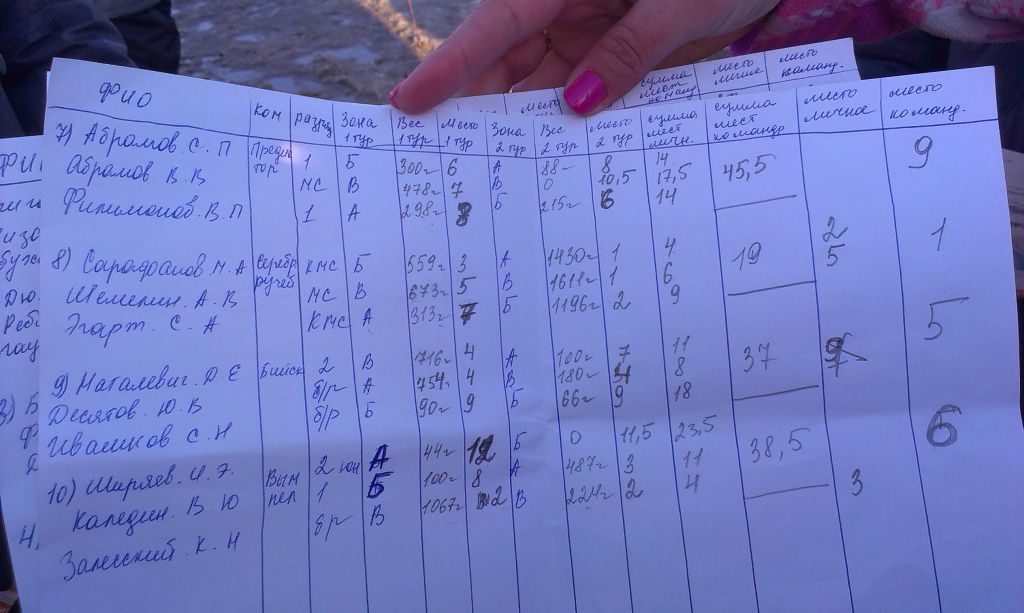 ФИО ком разряд Зона 1 тур Вес 1 тур Место 1 тур Зона 2 тур Вес 2 тур место 2 тур сумма мест личн. сумма мест командр место личное место команд.
7) Абрамов. С. П Предатор 1 Б 300г 6 А 88г 8 14 45,5 9
Абрамов. В. В мс В 478г 7 В 0 10,5 17,5
Филимонов. В. П 1 А 298г 8 Б 215г 6 14
8) Сарафанов. М. А Серебр ручей кмс Б 559г 3 А 1430г 1 4 19 2 1
Шемелин. А. В мс В 673г 5 В 1611г 1 6 5
Эгарт. С. А КМС А 313г 7 Б 1196г 2 9
9) Наталевич. Д. Е Бийск 2 В 1716г 4 А 100г 7 11 37 5
Десятов. Ю. В б/р А 754г 4 В 180г 4 8
Ивашков С. Н б/р Б 90г 9 Б 66г 9 18
10) Ширяев. И. Э. Вымпел 2 юн А 44г 12 Б 0 11,5 23,5 38,5 6
Каледин. В. Ю 1 Б 100г 8 А 487г 3 11
Залесский. К. Н б/р В 1067г 2 В 224г 2 4 3
сумма мест команд место личное место команд.